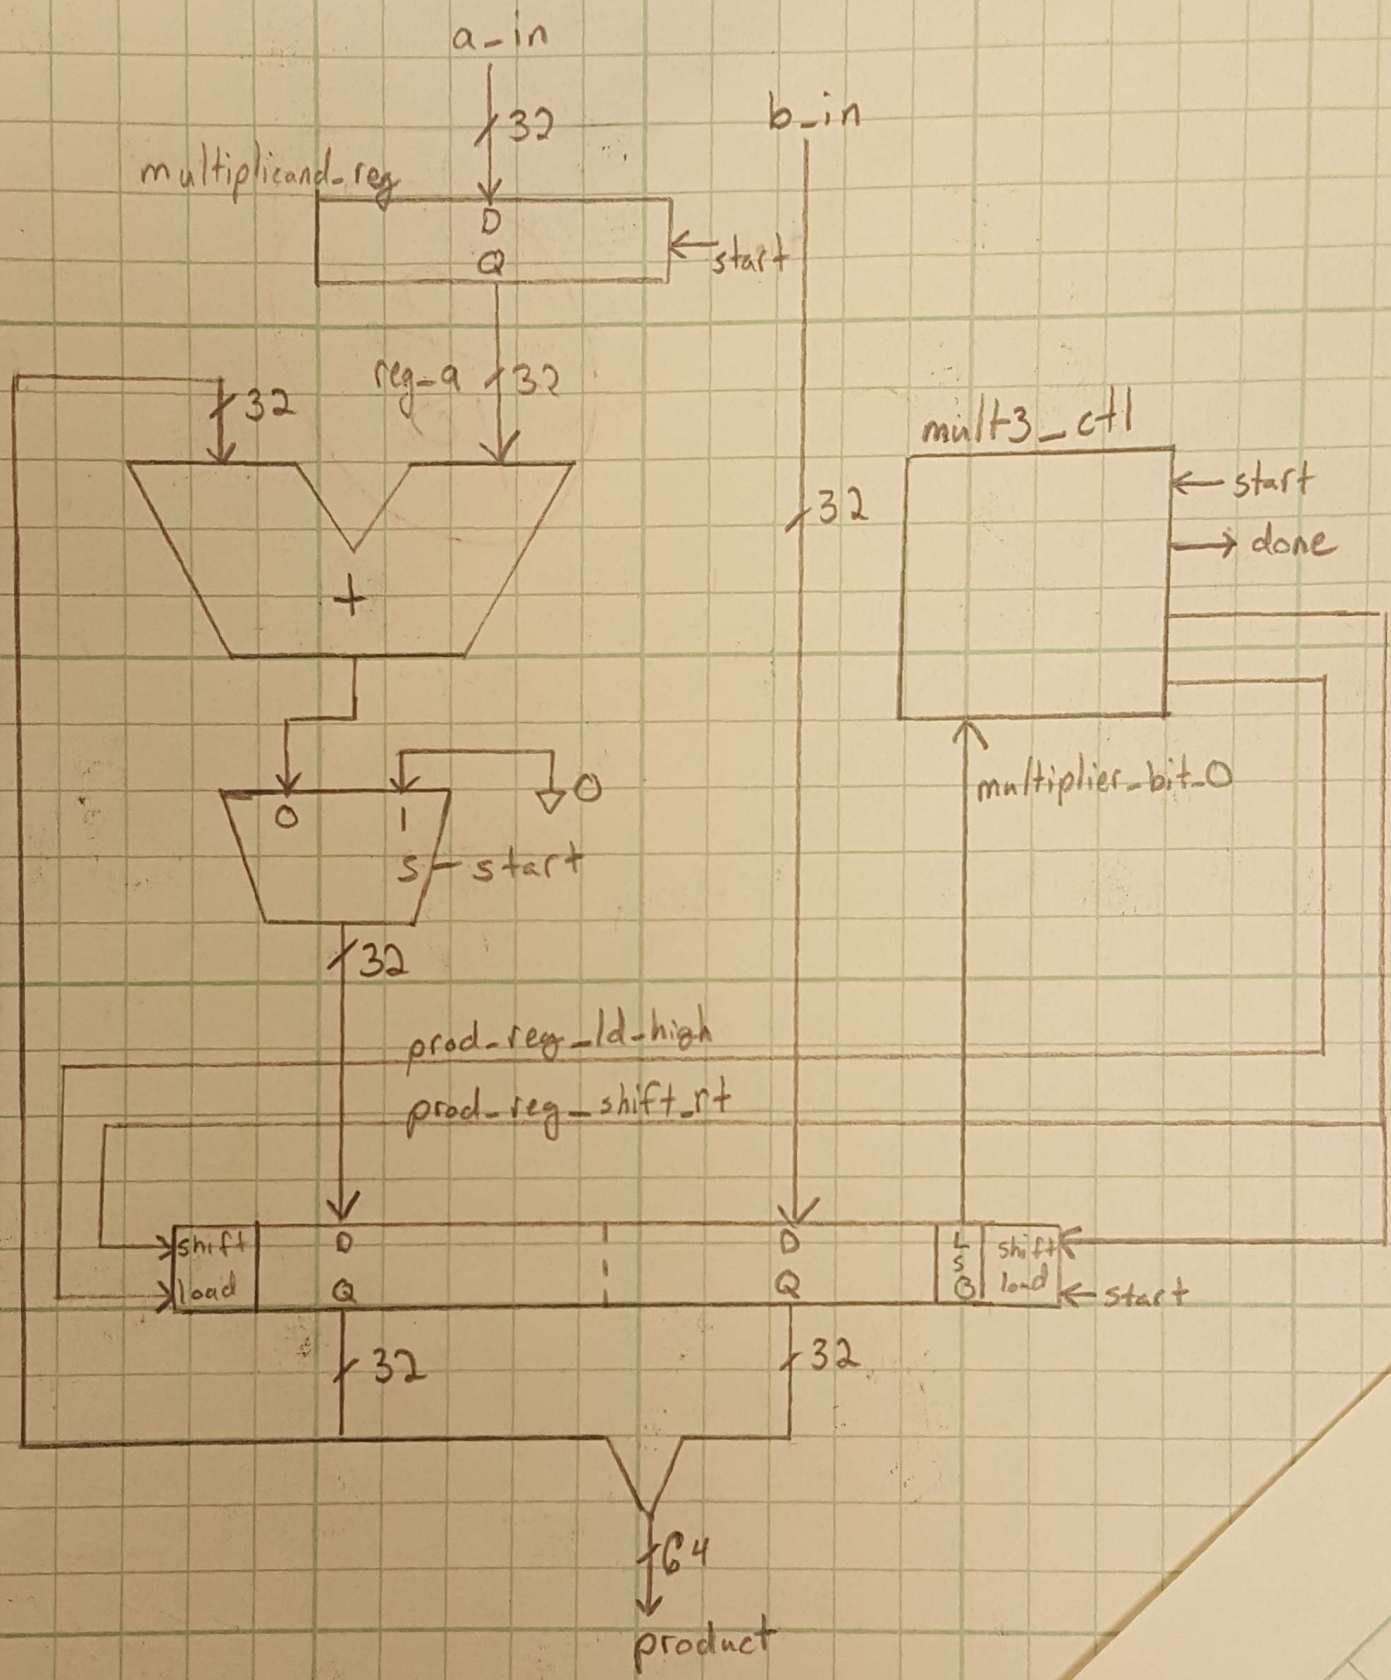 a_in
32
b_in
multiplicand_reg
D
Q
start
reg_a
32
32
mult3_ctl
start
done
32
+
multiplier_bit_0
0
0
1
s
start
32
prod_reg_ld_high
prod_reg_shift_rt
shift
load
D
Q
D
Q
LSB
shift
load
start
32
32
64
product